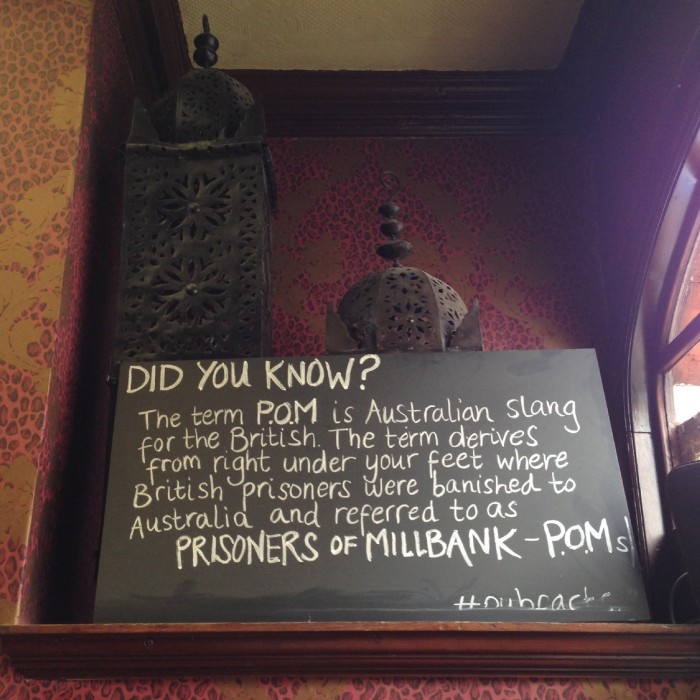 DID YOU KNOW?
The term P.O.M is Australian slang
for the British. The term derives
from right under your feet where
British prisoners were banished to
Australia and referred to as
PRISONERS OF MILLBANK - P.O.Ms!